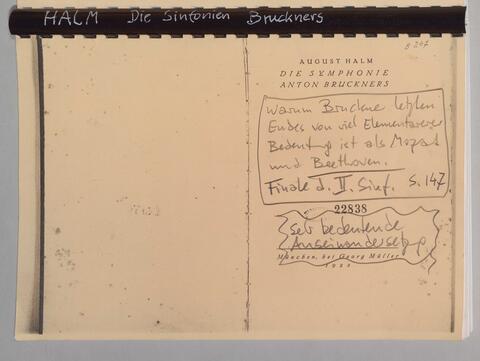 HALM Die Sinfonien Bruckners
B 247
AUGUST HALM
DIE SYMPHONIE
ANTON BRUCKNERS
Warum Bruckner letzten
Endes von viel Elementarerer
Bedeutung ist als Mozart
und Beethoven.
Finale d. II. Sinf. S. 147
22838
Sehr bedeutende
Auseinandersetzg
München, bei Georg Müller